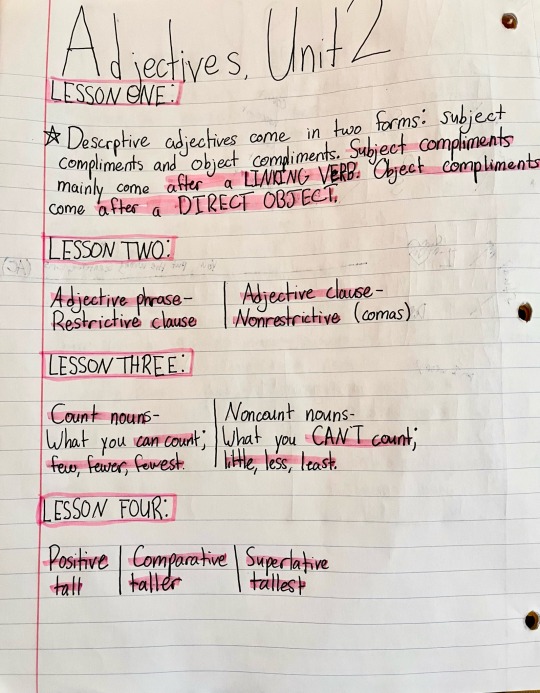 Adjectives, Unit 2
LESSON ONE:
☆ Descrptive adjectives come in two forms: subject
compliments and object compliments. Subject compliments
mainly come after a LINKING VERB. Object compliments
come after a DIRECT OBJECT.
LESSON TWO:
Adjective phrase- | Adjective clause-
Restrictive clause | Nonrestrictive (comas)
LESSON THREE:
Count nouns- | Noncount nouns-
What you can count; | What you CAN'T count;
few, fewer, fewest. | little, less, least.
LESSON FOUR:
Positive | Comparative | Superlative
tall | taller | tallest